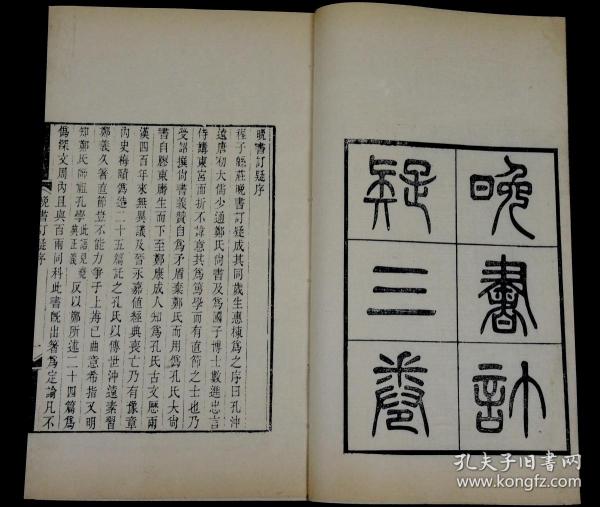 晚書訂
疑三卷
晚書訂疑序
程子緜莊晚書訂疑成其同歲生惠棟爲之序曰孔沖
遠唐初大儒少通鄭氏尙書及爲國子博士數進忠言
侍講東宮而折不諱意其爲篤學而有直節之士也乃
受詔撰尙書義贊自爲矛盾棄鄭氏而用爲孔氏大尙
書自膠東庸生而下至鄭康成人知爲孔氏古文歷兩
漢四百年來無異議及晉永嘉値經典喪亡乃有豫章
內史梅賾爲造二十五篇託之孔氏以傳世沖遠素習
鄭義久著直節豈不能力爭于上海已曲意希指又明
知鄭氏師祖孔學此語見堯典正義反以鄭所述二十四篇爲
僞深文周內且與百兩同科此書旣出著爲定論凡不
晚書訂疑序
一
孔夫子旧书网
www.kongfz.com